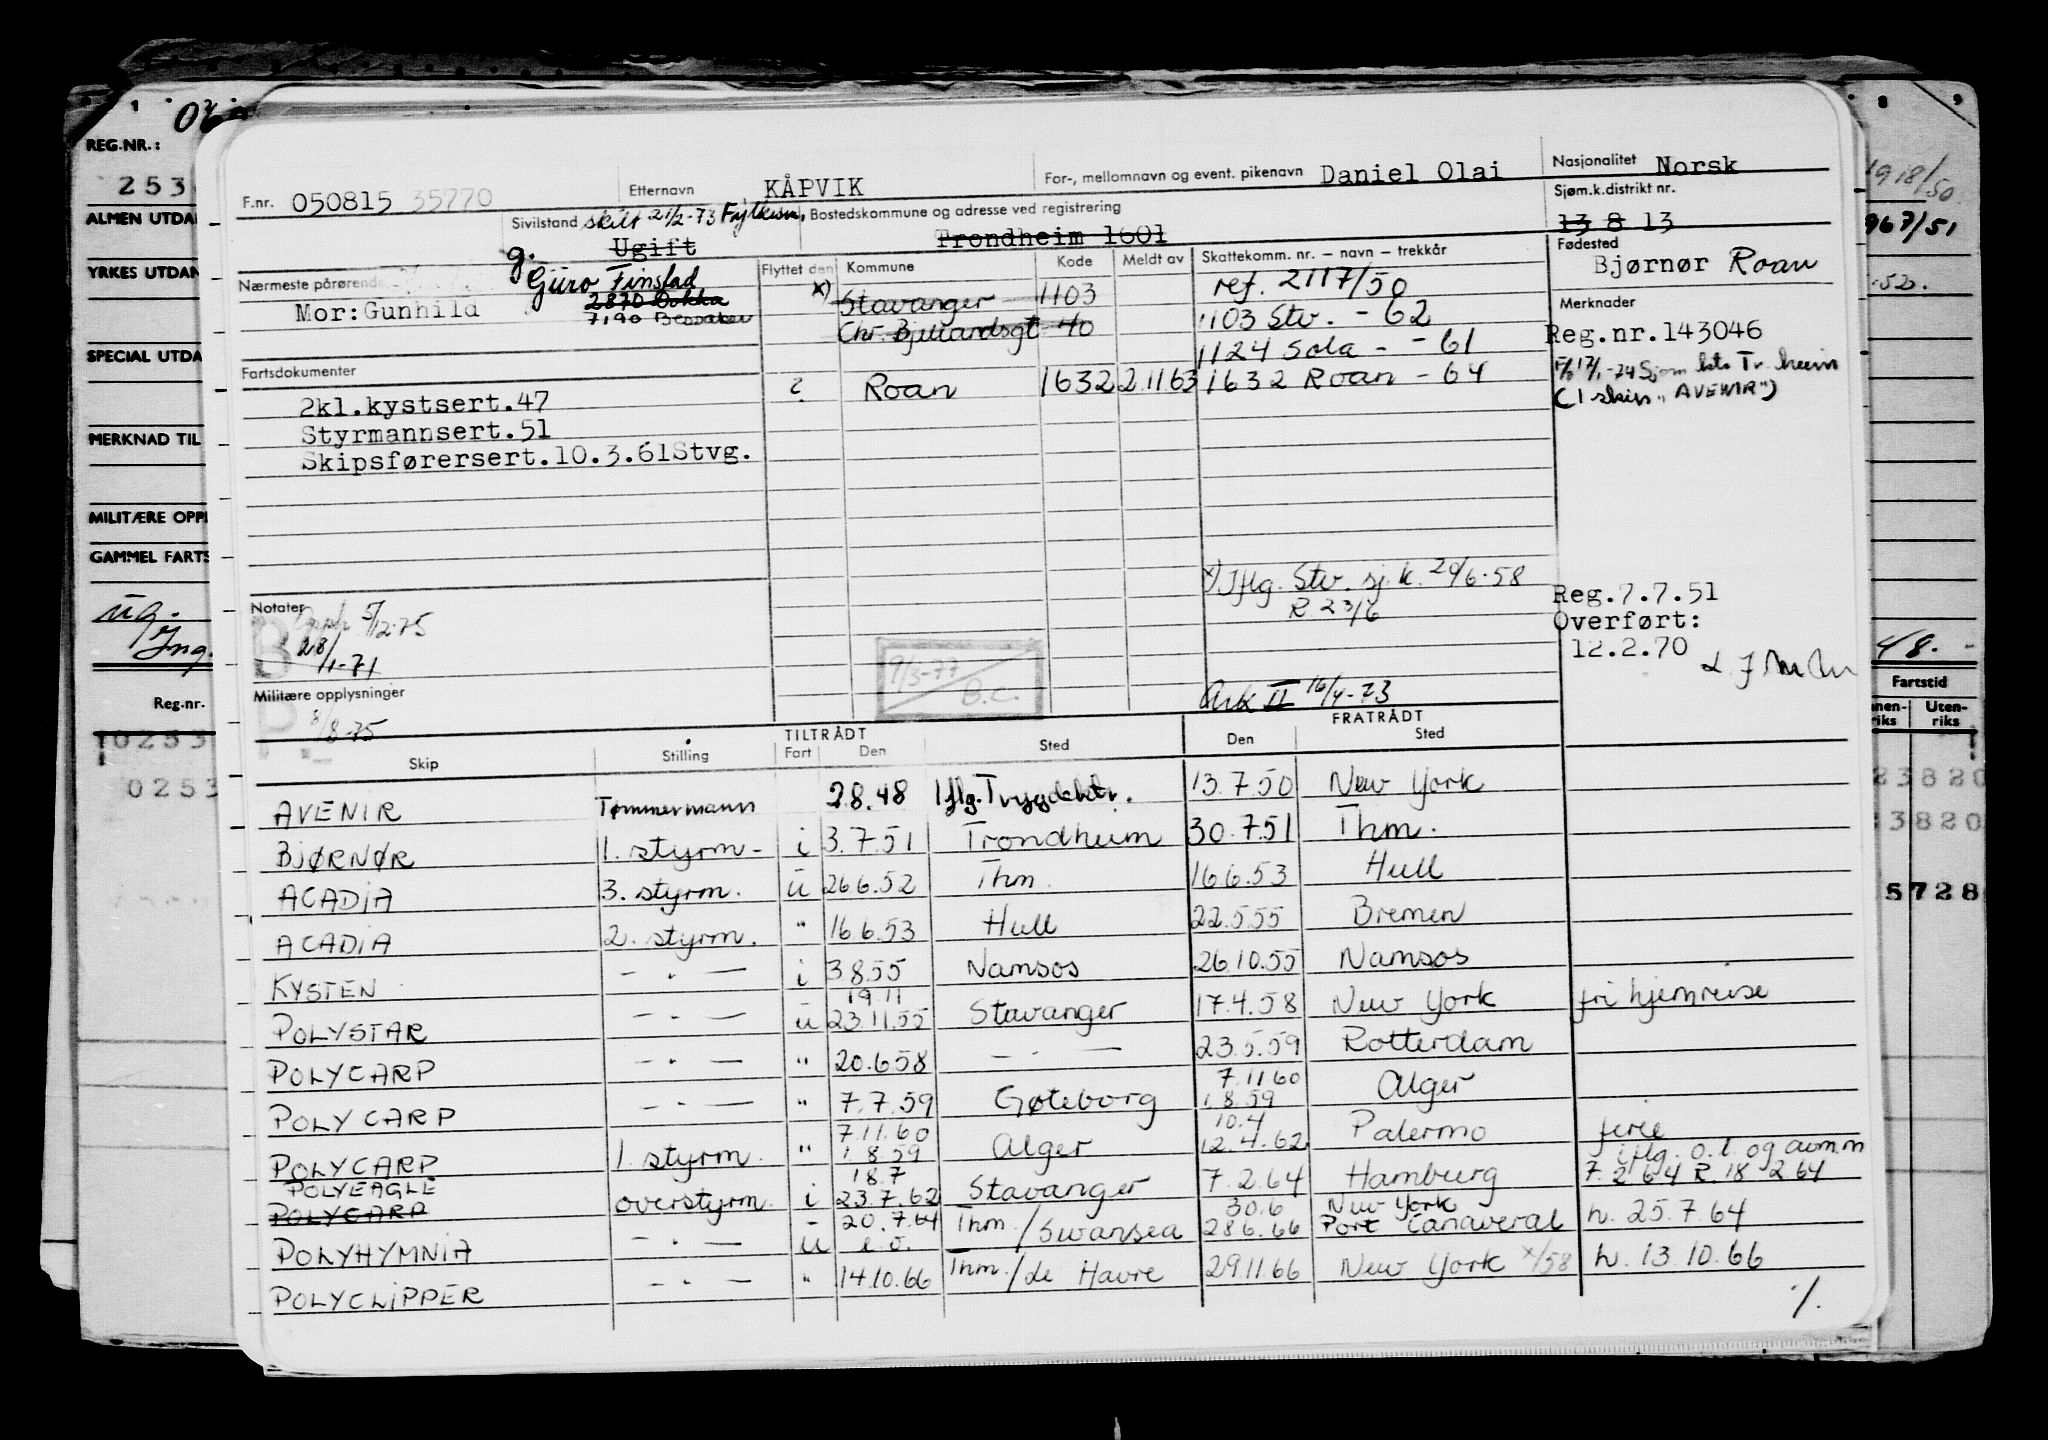 REG.NR.:
253
ALMEN UTDA
YRKES UTDAN
SPECIAL UTDA
MERKNAD TIL
MILITÆRE OPPL
GAMMEL FARTS
ug.
Ing.
Reg.nr.
0253
0253
F.nr. 050815 35770
Etternavn KÅPVIK
For-, mellomnavn og event. pikenavn Daniel Olai
Nasjonalitet Norsk
Sivilstand skilt 21/2-73 Fylkesm.
Ugift
g.
Bostedskommune og adresse ved registrering
Trondheim 1601
Sjøm.k.distrikt nr.
13 8 13
Fødested
Bjørnør Roan
Nærmeste pårørende
Guro Finstad
2870 Dokka
7190 Bessaker
Mor: Gunhild
Flyttet den Kommune Kode Meldt av Skattekomm. nr. – navn – trekkår
x) Stavanger 1103 ref. 2117/50
Chr. Bjellandsgt 40 1103 Stv. - 62
1124 Sola - - 61
? Roan 1632 2.11.63 1632 Roan - 64
Merknader
Reg.nr.143046
17/1-74 Sjøm.ktr. Tr.heim
(1 skip "AVENIR")
Fartsdokumenter
2kl.kystsert.47
Styrmannsert.51
Skipsførersert.10.3.61Stvg.
x) Iflg. Stv. sj.k. 20/6-58
R 23/6
Reg.7.7.51
Overført:
12.2.70
Notater
Opph 5/12-75
28/1-71
9/3-77
B.C.
Ark II 16/4-73
Militære opplysninger
8/8-75
TILTRÅDT FRATRÅDT
Skip Stilling Fart Den Sted Den Sted
AVENIR Tømmermann 2.8.48 Iflg. Trygdektr. 13.7.50 New York
BJØRNØR 1. styrm- i 3.7.51 Trondheim 30.7.51 Thm.
ACADIA 3. styrm. u 26.6.52 Thm. 16.6.53 Hull
ACADIA 2. styrm. " 16.6.53 Hull 22.5.55 Bremen
KYSTEN — " — i 3.8.55 Namsos 26.10.55 Namsos
POLYSTAR — " — u 19.11 23.11.55 Stavanger 17.4.58 New York fri hjemreise
POLYCARP — " — " 20.6.58 — " — 23.5.59 Rotterdam
POLYCARP — " — " 7.7.59 Gøteborg 7.11.60 1.8.59 Alger
POLYCARP 1. styrm. " 7.11.60 1.8.59 Alger 10.4 12.4.62 Palermo ferie
POLYEAGLE POLYCARP overstyrm. i 18.7 23.7.62 Stavanger 7.2.64 Hamburg iflg. o.l. og avm.m 7.2.64 R.18.2.64
POLYHYMNIA — " — u 20.7.64 Thm./Swansea 30.6 28.6.66 New York Port Canaveral h. 25.7.64
POLYCLIPPER — " — " 14.10.66 Thm./de Havre 29.11.66 New York x/58 h. 13.10.66
%.
8 9
1918/50
967/51
48.-
Fartstid
Uten-riks
23820
3820
5728